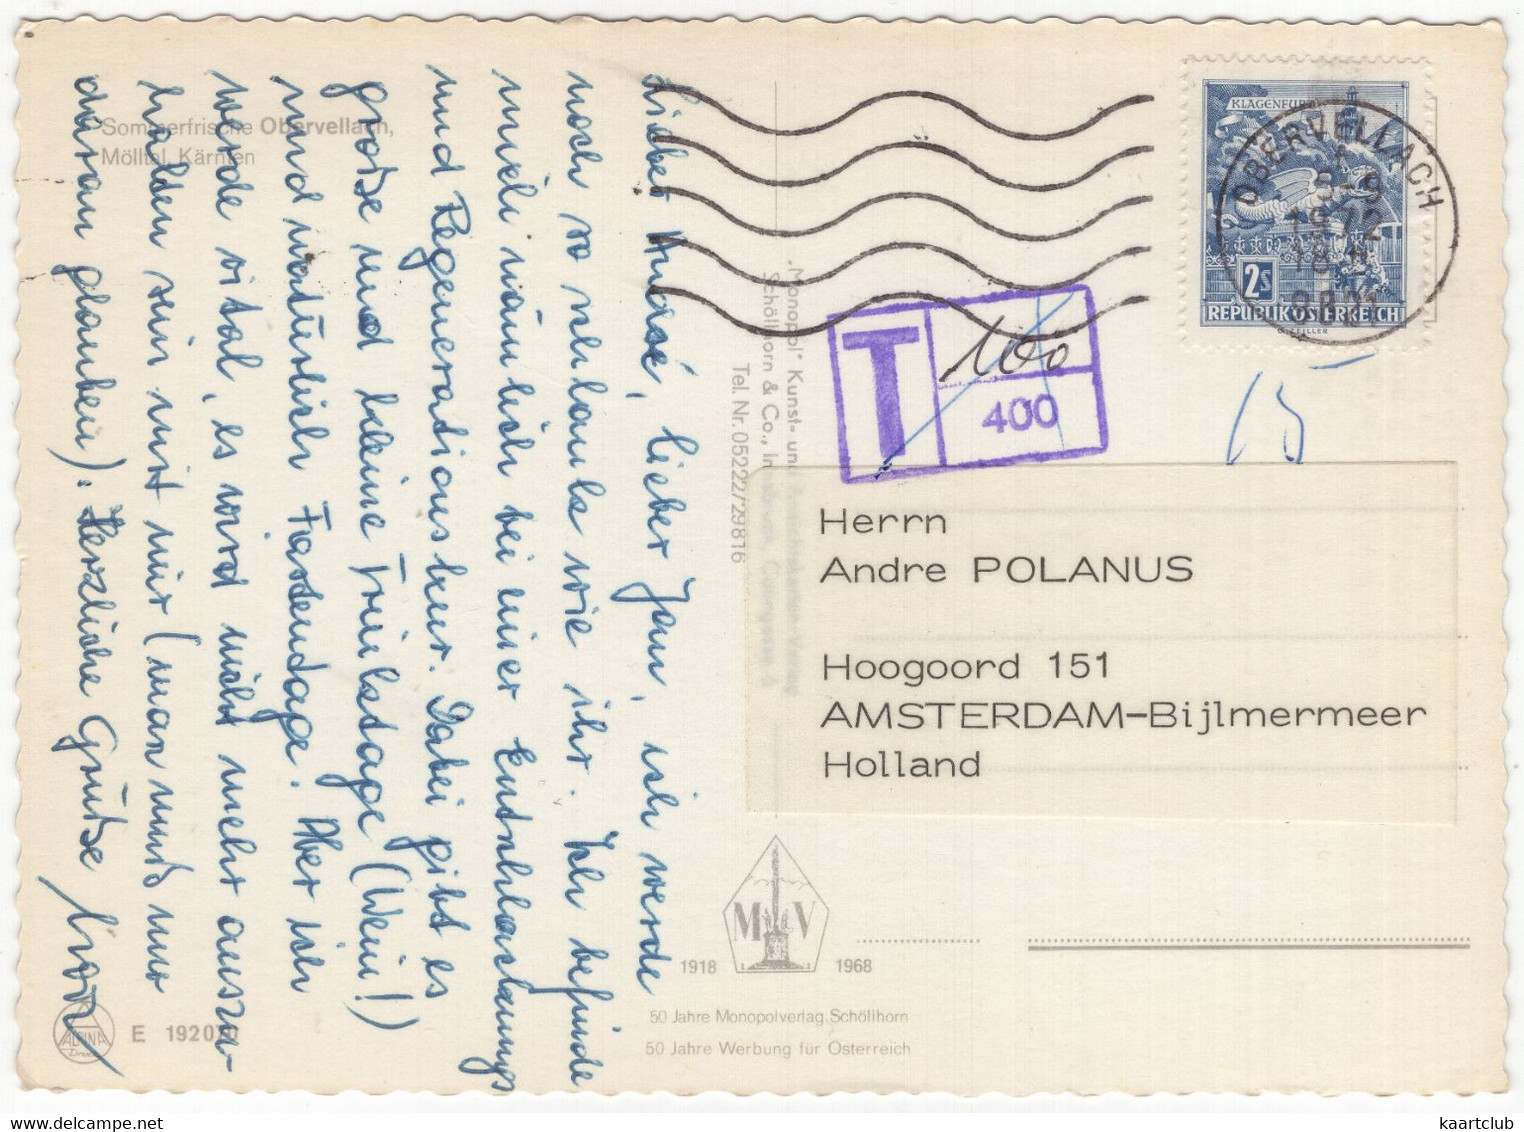 Sommerfrische Obervellach,
Mölltal, Kärnten
Lieber André, lieber Jan, ich werde
noch so schlank wie ihr. Ich befinde
mich nämlich bei einer Entschlackungs
und Regenerationskur. Dabei gibt es
große und kleine Trinktage (Wein!)
und natürlich Fastentage. Aber ich
werde vital, es wird nicht mehr auszu-
halten sein mit mir (man muß nur
daran glauben). Herzliche Grüße
"Monopol" Kunst- und
Schöllhorn & Co.,
Tel. Nr. 05222/29816
KLAGENFURT
2S
REPUBLIK ÖSTERREICH
OBERVELLACH
8-9
1972
18
9821
T
100
400
15
Herrn
Andre POLANUS
Hoogoord 151
AMSTERDAM-Bijlmermeer
Holland
M V
1918 1968
50 Jahre Monopolverlag Schöllhorn
50 Jahre Werbung für Österreich
ALPINA
Druck
E 19207
kaartclub
www.delcampe.net